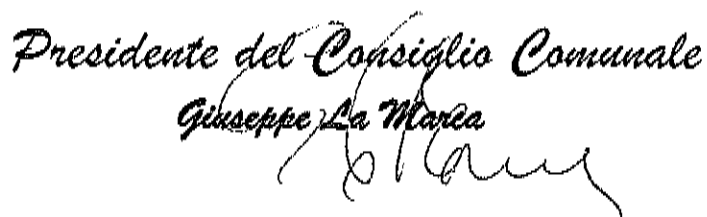 Presidente del Consiglio Comunale
Giuseppe La Marca